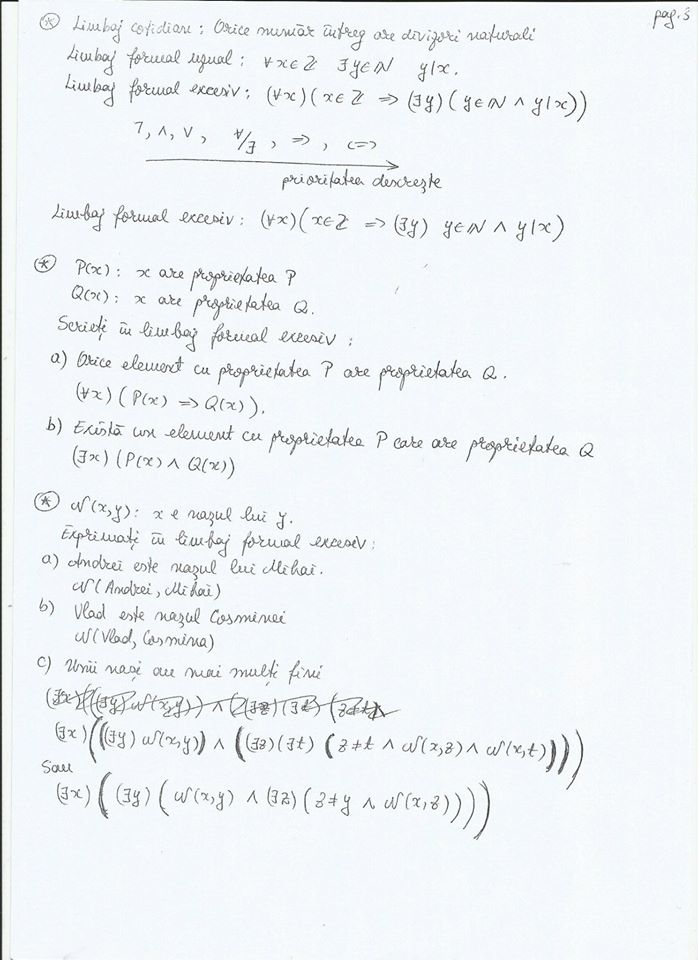 pag. 3
* Limbaj cotidian: Orice număr întreg are divizori naturali
Limbaj formal uzual: ∀x∈ℤ ∃y∈ℕ y|x.
Limbaj formal excesiv: (∀x)(x∈ℤ => (∃y)(y∈ℕ ∧ y|x))
¬, ∧, ∨, ∀/∃, =>, <=>
prioritatea descrește
Limbaj formal excesiv: (∀x)(x∈ℤ => (∃y) y∈ℕ ∧ y|x)
* P(x): x are proprietatea P
Q(x): x are proprietatea Q.
Scrieți în limbaj formal excesiv:
a) Orice element cu proprietatea P are proprietatea Q.
(∀x)(P(x) => Q(x)).
b) Există un element cu proprietatea P care are proprietatea Q
(∃x)(P(x) ∧ Q(x))
* N(x,y): x e nașul lui y.
Exprimați în limbaj formal excesiv:
a) Andrei este nașul lui Mihai.
N(Andrei, Mihai)
b) Vlad este nașul Cosminei
N(Vlad, Cosmina)
c) Unii nași au mai mulți fini
(∃x)((∃y) N(x,y)) ∧ ((∃z)(∃t) (z≠t ∧
(∃x)(((∃y) N(x,y)) ∧ ((∃z)(∃t) (z≠t ∧ N(x,z) ∧ N(x,t))))
Sau
(∃x)((∃y)(N(x,y) ∧ (∃z)(z≠y ∧ N(x,z))))